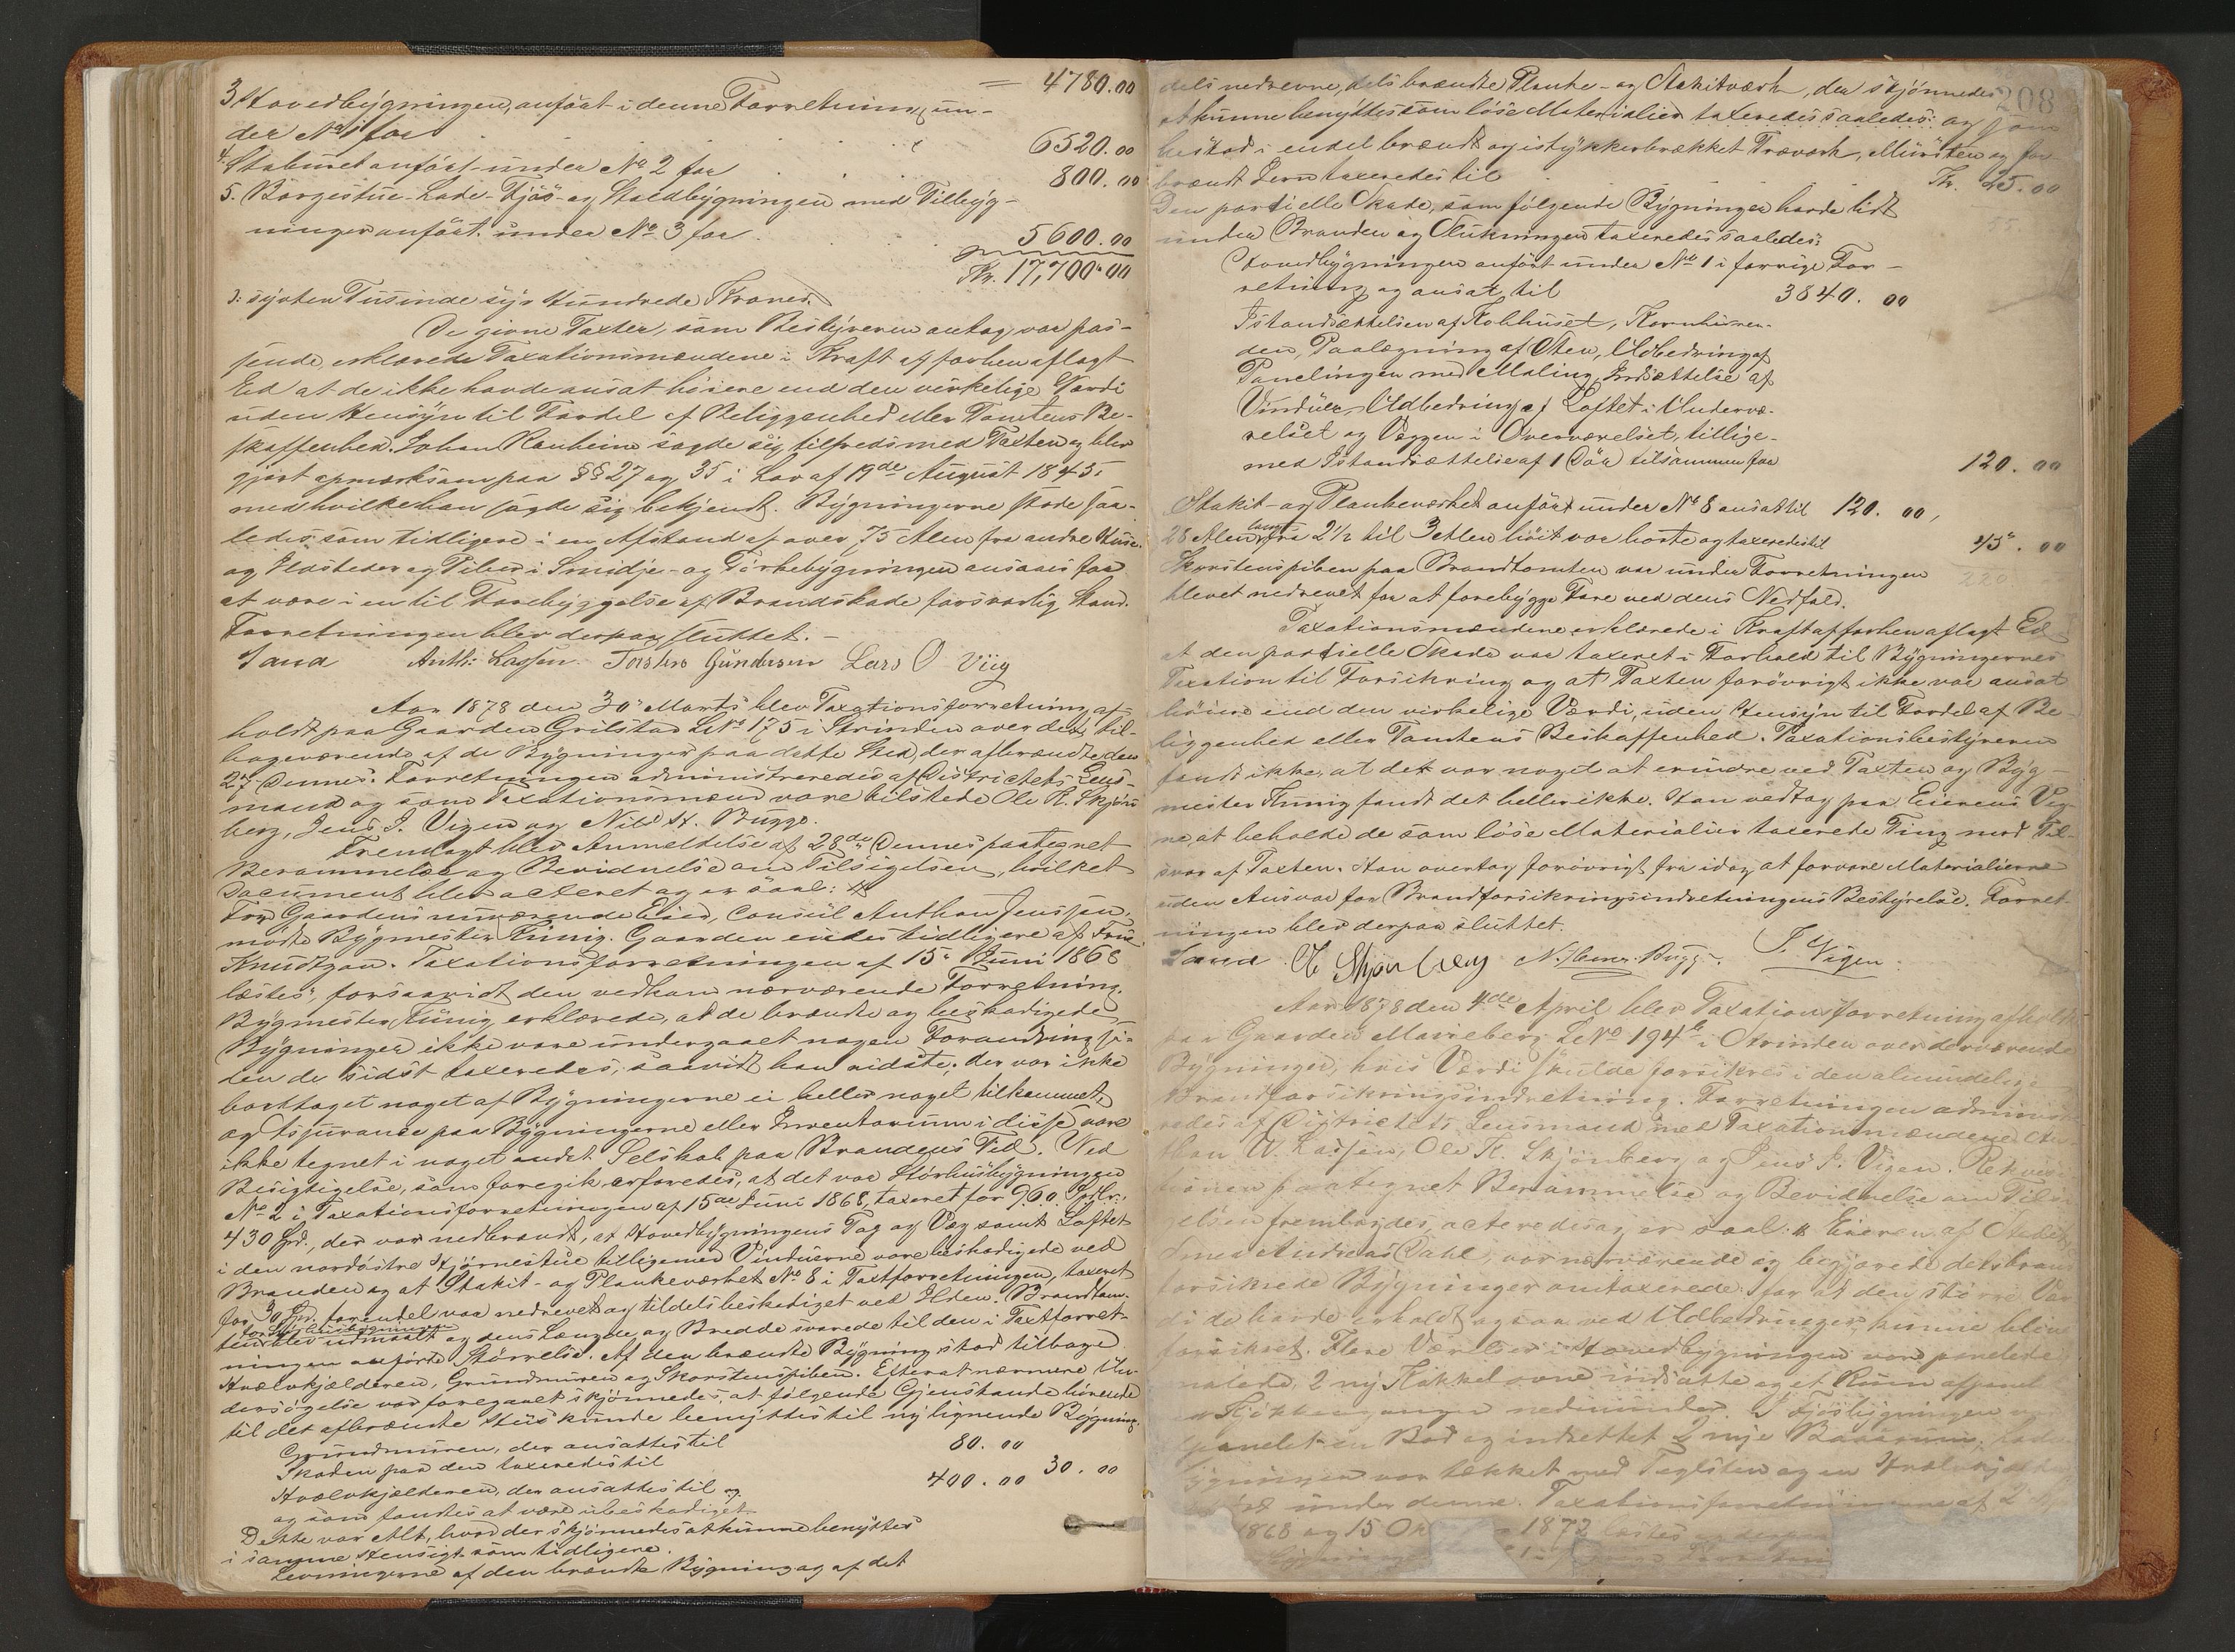 = 4780.00
3 Hovedbygningen, anført i denne Forretning un-
der No 1 for 6520.00
4. Staburet anført under No 2 for 800.00
5. Borgestue- Lade- Fjøs- og Staldbygningen med Tilbyg-
ninger anført under No 3 for 5600.00
Kr. 17,700.00
ↄ: sytten Tusinde syv Hundrede Kroner.
De givne Taxter, som Bestyreren antog var pas-
sende, erklærede Taxationsmændene i Kraft af forhen aflagt
Ed at de ikke havde ansat høiere end den virkelige Værdi
uden Hensyn til Fordel af Beliggenhed eller Tomtens Be-
skaffenhed. Johan Ranheim sagde sig tilfreds med Taxten og blev
gjort opmærksom paa §§ 27 og 35 i Lov af 19de August 1845,
med hvilke han sagde sig bekjendt. Bygningerne stode saa-
ledes som tidligere i en Afstand af over 75 Alen fra andre Huse.
og Ildsteder og Piber i Smidje- og Tørkebygningen ansaaes for
at være i en til Forebyggelse af Brandskade forsvarlig Stand.
Forretningen blev derpaa sluttet. -
Sand Anth: Lassen. Torsten Gundersen Lars O Viig
Aar 1878 den 30' Marts blev Taxationsforretning af-
holdt paa Gaarden Grilstad LNo 175 i Strinden over det til-
bageværende af de Bygninger paa dette Sted, der afbrændte den
27' Dennes. Forretningen administreredes af Districtets Lens-
mand og som Taxationsmænd vare tilstede Ole K. Skjøn-
berg, Jens J. Vigen og Nils H. Bugge.
Fremlagt blev Anmeldelse af 28de Dennes paategnet
Berammelse og Bevidnelse om Tilsigelsen, hvilket
Document blev acteret og er saal: #
For Gaardens nuværende Eier, Consul Anthon Jenssen,
mødte Bygmester Künig. Gaarden eiedes tidligere af Frue
Knudtzon. Taxationsforretningen af 15' Juni 1868
læstes, forsaavidt den vedkom nærværende Forretning.
Bygmester Künig erklærede, at de brændte og beskadigede
Bygninger ikke vare undergaaet nogen Forandring si-
den de sidst taxeredes, saavidt han vidste; der var ikke
borttaget noget af Bygningerne ei heller noget tilkommet,
og Assurance paa Bygningerne eller Inventarium i disse vare
ikke tegnet i noget andet Selskab paa Brandens Tid. Ved
Besigtigelse, som foregik erfaredes, at det var Størhusbygningen
No 2 i Taxationsforretningen af 15de Juni 1868, taxeret for 960 Spdlr.,
430 Spd., der var nedbrændt, at Hovedbygningens Tag og Væg samt Loftet
i den nordøstre Hjørnestue tilligemed Vinduerne vare beskadigede ved
Branden og at Stakit- og Plankeværket No 8 i Taxtforretningen, taxeret
for 30 Spd. forendel var nedrevet og tildels beskadiget ved Ilden. Brandtom-
ten for Størhusbygningen blev udmaalt og dens Længde og Bredde svarede til den i Taxtforret-
ningen anførte Størrelse. Af den brændte Bygning stod tilbage
Hvælvkjælderen, Grundmuren og Skorstenspiben. Efterat nærmere Un-
dersøgelse var foregaaet skjønnedes, at følgende Gjenstande hørende
til det afbrændte Huus kunde benyttes til ny lignende Bygning.
Grundmuren, der ansattes til 80.00
Skaden paa den taxeredes til 30.00
Hvælvkjælderen, der ansattes til 400.00
og som fandtes at være ubeskadiget
Dette var Alt, hvad der skjønnedes at kunne benyttes
i samme Hensigt som tidligere.
Levningerne af den brændte Bygning og af det
208
dels nedrevne, dels brændte Planke- og Stakitværk, der skjønnedes
at kunne benyttes som løse Materialier taxeredes saaledes: og som
bestod i endel brændt og istykkerbrækket Træværk, Mursten og for-
brændt Jern taxeredes til Kr. 25.00
Den partielle Skade, som følgende Bygninger havde lidt
under Branden og Slukningen taxeredes saaledes:
Hovedbygningen anført under No 1 i forrige For-
retning og ansat til 3840.00
Istandsættelsen af Kobhuset, Kornhirren-
den, Paalægning af Sten, Udbedring af
Panelingen med Maling, Indsættelse af
Vinduer, Udbedring af Loftet i Undervæ-
relset og Væggen i Overværelset, tillige-
med Istandsættelse af 1 Dør tilsammen for 120.00
Stakit- og Plankeværket anført under No 8 ansat til 120.00,
28 Alen langt fra 2 1/2 til 3 Alen høit var borte og taxeredes til 45.00
Skorstenspiben paa Brandtomten var under Forretningen
blevet nedrevet for at forebygge Fare ved dens Nedfald.
Taxationsmændene erklærede i Kraft af forhen aflagt Ed
at den partielle Skade var taxeret i Forhold til Bygningernes
Taxation til Forsikring og at Taxten forøvrigt ikke var ansat
høiere end den virkelige Værdi, uden Hensyn til Fordel af Be-
liggenhed eller Tomtens Beskaffenhed. Taxationsbestyreren
fandt ikke, at det var noget at erindre ved Taxten og Byg-
mester Künig fandt det heller ikke. Han vedtog paa Eierens Veg-
ne at beholde de som løse Materialier taxerede Ting mod Til-
svar af Taxten. Han overtog forøvrigt fra idag at forvare Materialierne
uden Ansvar for Brandforsikringsindretningens Bestyrelse. Forret-
ningen blev derpaa sluttet.
Sand O K Skjønberg N. Hemn. Bugge. J. Vigen.
Aar 1878 den 4de April blev Taxationsforretning afholdt
paa Gaarden Maireberg LNo 194 i Strinden over derværende
Bygninger, hvis Værdi skulde forsikres i den almindelige
Brandforsikringsindretning. Forretningen administre-
redes af Districtets Lensmand med Taxationsmændene An-
thon W. Lassen, Ole K. Skjønberg og Jens J. Vigen. Rekvisi-
tionen paategnet Berammelse og Bevidnelse om Tilsi-
gelsen frembødes, acteredes og er saal: # Eieren af Stedet
Andreas Dahl, var nærværende og begjærede de
forsikrede Bygninger omtaxerede for at den større Vær-
di de havde erholdt ved Udbedringer, kunne blive
forsikret. Flere Værelser i Hovedbygningen vare panelede
malede 2 ny Kakkelovne indsatte og et Rum afpanel
Kjøkkengangen nedenunder. I Fjøsbygningen var
panelet en Bod og indrettet 2 nye
bygningen var tækket med Teglsten og en Hvælvkjælder
under denne. Taxationsforretningerne af 2
1868 og 15 1872 læstes